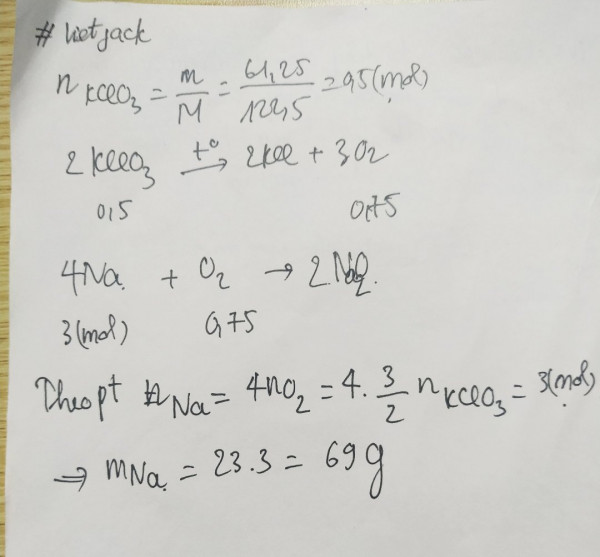 # Vietjack
n KClO3 = m/M = 61,25/122,5 = 0,5 (mol)
2KClO3 t° → 2KCl + 3O2
0,5 0,75
4Na + O2 → 2Na2O.
3(mol) 0,75
Theo pt nNa = 4nO2 = 4. 3/2 nKClO3 = 3(mol)
⇒ mNa = 23.3 = 69g